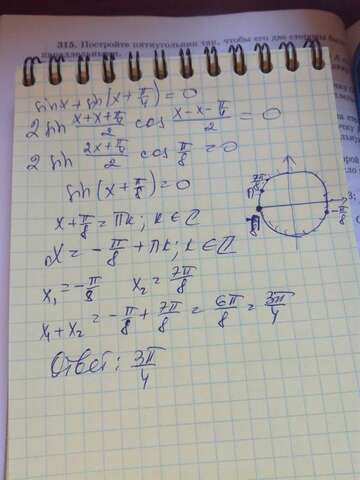 315. Постройте пятиугольник так, чтобы его две стороны были
sinx + sin(x + π/4) = 0
2 sin (x + x + π/4)/2 cos (x - x - π/4)/2 = 0
2 sin (2x + π/4)/2 cos π/8 = 0
sin(x + π/8) = 0
x + π/8 = πk; k ∈ Z
x = -π/8 + πk; k ∈ Z
x₁ = -π/8 x₂ = 7π/8
x₁ + x₂ = -π/8 + 7π/8 = 6π/8 = 3π/4
Ответ: 3π/4
7π/8
-π/8